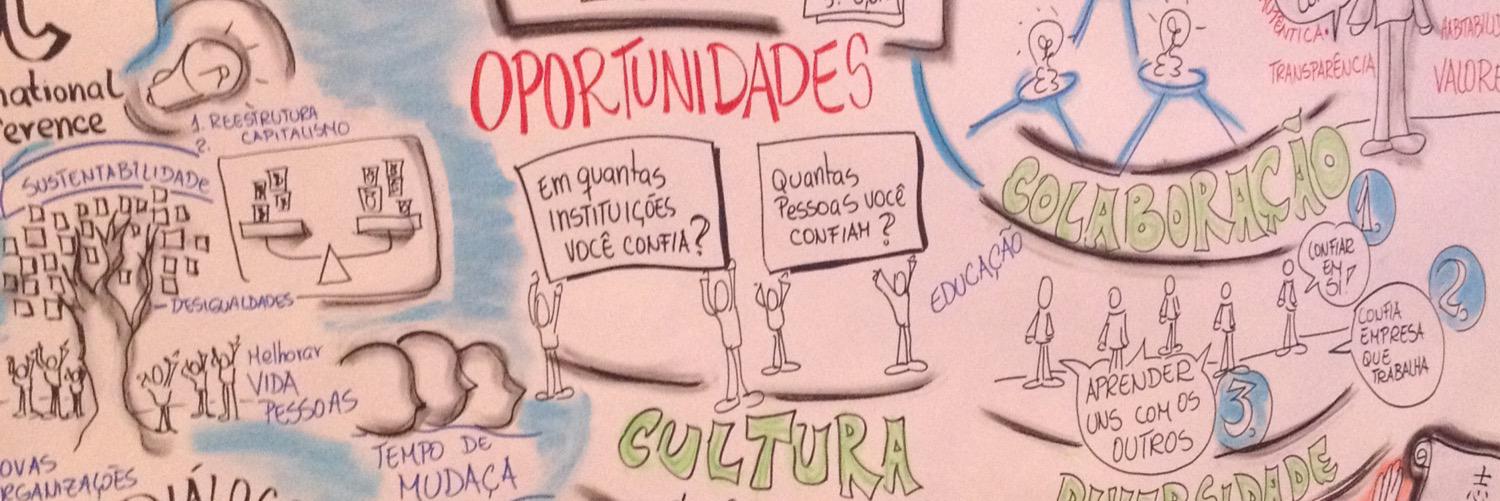 national
erence
1. REESTRUTURA
CAPITALISMO
2.
SUSTENTABILIDADE
DESIGUALDADES
Melhorar
VIDA
PESSOAS
OVAS
RGANIZAÇÕES
TEMPO DE
MUDAÇA
OPORTUNIDADES
Em quantas
INSTITUIÇÕES
VOCÊ CONFIA?
Quantas
Pessoas você
CONFIAM?
CULTURA
TRANSPARÊNCIA
VALORE
COLABORAÇÃO
EDUCAÇÃO
1.
CONFIAR
EM
SI!
2.
CONFIA
EMPRESA
QUE
TRABALHA
APRENDER
UNS COM OS
OUTROS
3.
DIVERSIDADE